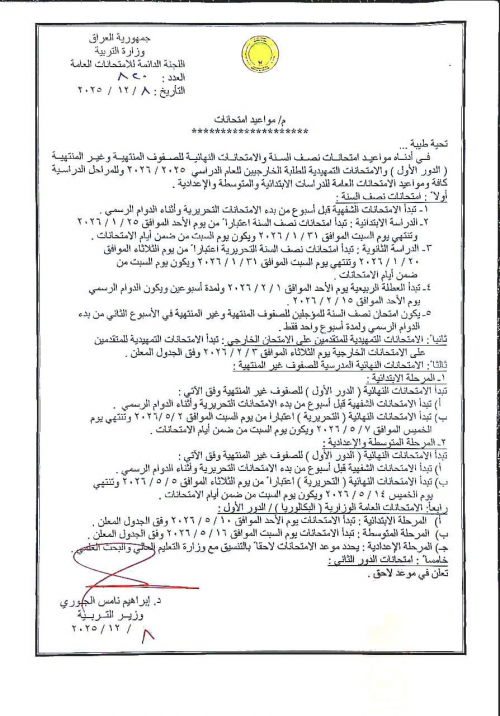 جمهورية العراق
وزارة التربية
اللجنة الدائمة للامتحانات العامة
العدد : ٨٢٠
التأريخ : ٨ / ١٢ / ٢٠٢٥
م/ مواعيد امتحانات
********************
تحية طيبة ...
في أدناه مواعيد امتحانات نصف السنة والامتحانات النهائية للصفوف المنتهية وغير المنتهية
( الدور الأول ) والامتحانات التمهيدية للطلبة الخارجيين للعام الدراسي ٢٠٢٥ / ٢٠٢٦ وللمراحل الدراسية
كافة ومواعيد الامتحانات العامة للدراسات الابتدائية والمتوسطة والإعدادية .
أولاً : امتحانات نصف السنة :
١- تبدأ الامتحانات الشفهية قبل أسبوع من بدء الامتحانات التحريرية وأثناء الدوام الرسمي .
٢- الدراسة الابتدائية : تبدأ امتحانات نصف السنة اعتباراً من يوم الأحد الموافق ٢٥ / ١ / ٢٠٢٦
وتنتهي يوم السبت الموافق ٣١ / ١ / ٢٠٢٦ ويكون يوم السبت من ضمن أيام الامتحانات .
٣- الدراسة الثانوية : تبدأ امتحانات نصف السنة التحريرية اعتباراً من يوم الثلاثاء الموافق
٢٠ / ١ / ٢٠٢٦ وتنتهي يوم السبت الموافق ٣١ / ١ / ٢٠٢٦ ويكون يوم السبت من
ضمن أيام الامتحانات .
٤- تبدأ العطلة الربيعية يوم الأحد الموافق ١ / ٢ / ٢٠٢٦ ولمدة أسبوعين ويكون الدوام الرسمي
يوم الأحد الموافق ١٥ / ٢ / ٢٠٢٦ .
٥- يكون امتحان نصف السنة للمؤجلين للصفوف المنتهية وغير المنتهية في الأسبوع الثاني من بدء
الدوام الرسمي ولمدة أسبوع واحد فقط .
ثانياً : الامتحانات التمهيدية للمتقدمين على الامتحان الخارجي : تبدأ الامتحانات التمهيدية للمتقدمين
على الامتحانات الخارجية يوم الثلاثاء الموافق ٣ / ٢ / ٢٠٢٦ وفق الجدول المعلن .
ثالثاً : الامتحانات النهائية المدرسية للصفوف غير المنتهية :
١- المرحلة الابتدائية :
تبدأ الامتحانات النهائية ( الدور الأول ) للصفوف غير المنتهية وفق الآتي :
أ) تبدأ الامتحانات الشفهية قبل أسبوع من بدء الامتحانات التحريرية وأثناء الدوام الرسمي .
ب) تبدأ الامتحانات النهائية ( التحريرية ) اعتباراً من يوم السبت الموافق ٢ / ٥ /٢٠٢٦ وتنتهي يوم
الخميس الموافق ٧ / ٥ / ٢٠٢٦ ويكون يوم السبت من ضمن أيام الامتحانات .
٢- المرحلة المتوسطة والإعدادية :
تبدأ الامتحانات النهائية ( الدور الأول ) للصفوف غير المنتهية وفق الآتي :
أ) تبدأ الامتحانات الشفهية قبل أسبوع من بدء الامتحانات التحريرية وأثناء الدوام الرسمي .
ب) تبدأ الامتحانات النهائية ( التحريرية ) اعتباراً من يوم الثلاثاء الموافق ٥ / ٥ / ٢٠٢٦ وتنتهي
يوم الخميس ١٤ / ٥ / ٢٠٢٦ ويكون يوم السبت من ضمن أيام الامتحانات .
رابعاً : الامتحانات العامة الوزارية ( البكالوريا ) / الدور الأول :
أ) المرحلة الابتدائية : تبدأ الامتحانات يوم الأحد الموافق ١٠ / ٥ / ٢٠٢٦ وفق الجدول المعلن .
ب) المرحلة المتوسطة : تبدأ الامتحانات يوم السبت الموافق ١٦ / ٥ / ٢٠٢٦ وفق الجدول المعلن .
جـ) المرحلة الإعدادية : يحدد موعد الامتحانات لاحقاً بالتنسيق مع وزارة التعليم العالي والبحث العلمي .
خامساً : امتحانات الدور الثاني :
تعلن في موعد لاحق .
د. إبراهيم نامس الجبوري
وزير التربية
٨ / ١٢ / ٢٠٢٥